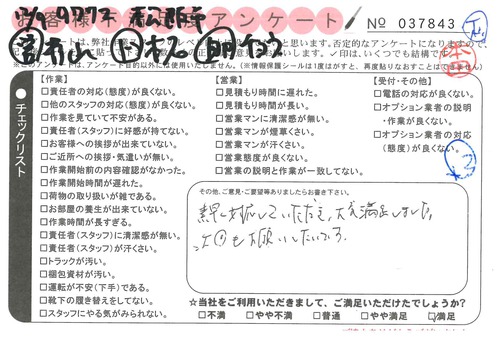 お客様 アンケート
No 037843
【作業】
□責任者の対応(態度)が良くない。
□他のスタッフの対応(態度)が良くない。
□作業を見ていて不安がある。
□責任者(スタッフ)に好感が持てない。
□お客様への挨拶が出来ていない。
□ご近所への挨拶・気遣いが無い。
□作業開始前の内容確認がなかった。
□作業開始時間が遅れた。
□荷物の取り扱いが雑である。
□お部屋の養生が出来ていない。
□作業時間が長すぎる。
□責任者(スタッフ)に清潔感が無い。
□責任者(スタッフ)が汗くさい。
□トラックが汚い。
□梱包資材が汚い。
□運転が不安(下手)である。
□靴下の履き替えをしてない。
□スタッフにやる気がみられない。
【営業】
□見積もり時間に遅れた。
□見積もり時間が長い。
□営業マンに清潔感が無い。
□営業マンが煙草くさい。
□営業マンが汗くさい。
□営業態度が良くない。
□営業の説明と作業が一致してない。
【受付・その他】
□電話の対応が良くない。
□オプション業者の説明
・作業が良くない。
□オプション業者の対応
(態度)が良くない。
チェックリスト
その他、ご意見・ご要望等ありましたらお書き下さい。
素早く対応していただき、大変満足しました。
次回もお願いしたいです。
☆当社をご利用いただきまして、ご満足いただけたでしょうか?
□不満 □やや不満 □普通 □やや満足 □満足